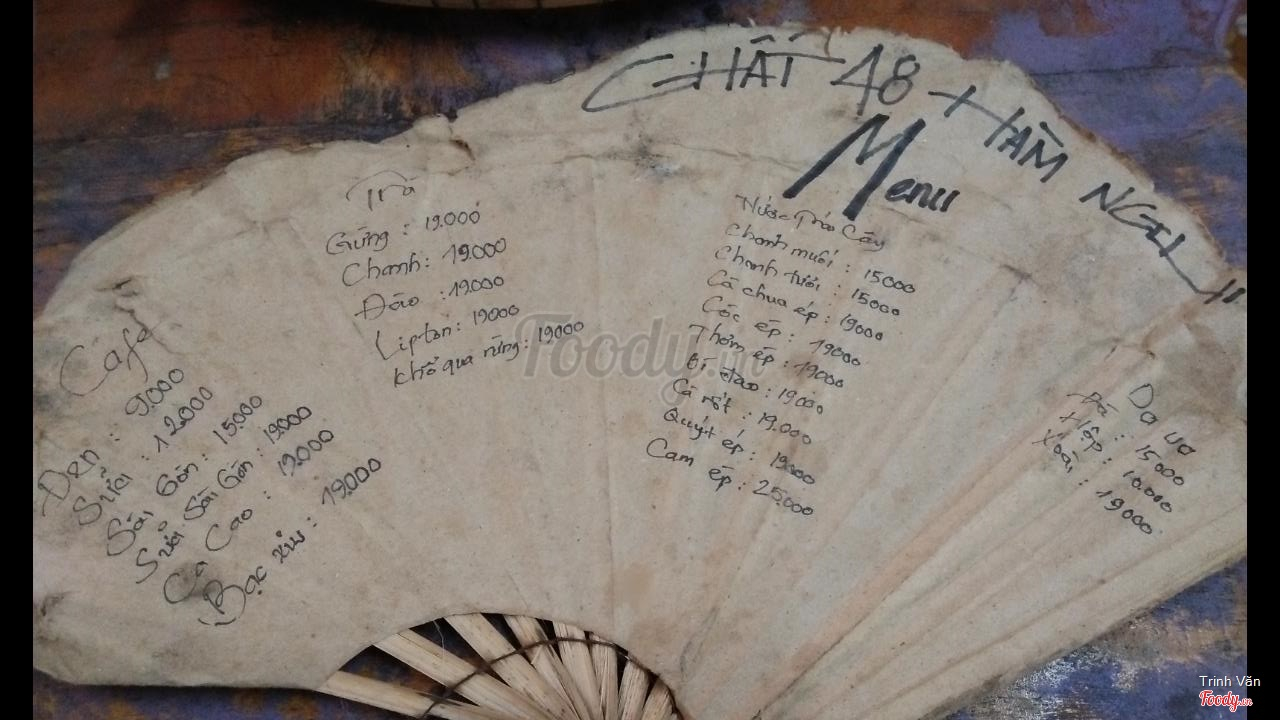 CHẤT 48 HÀM NGHI
Menu
Cafe
Đen : 9.000
Sữa : 12000
Sài Gòn : 15.000
Sữa Sài Gòn : 19.000
Ca Cao : 19.000
Bạc xỉu : 19.000
Trà
Gừng : 19.000
Chanh : 19.000
Đào : 19.000
Lipton : 19000
khổ qua rừng : 19000
Nước Trái Cây
Chanh muối : 15000
Chanh tươi : 15000
Cà chua ép : 19000
Cóc ép : 19000
Thơm ép : 19000
Bí đao : 19000
Cà rốt : 19.000
Quýt ép : 19000
Cam ép : 25.000
Da ua
Đá : 15000
Hộp : 10.000
Xoài : 19000
Foody.vn
Trinh Văn
Foody.vn